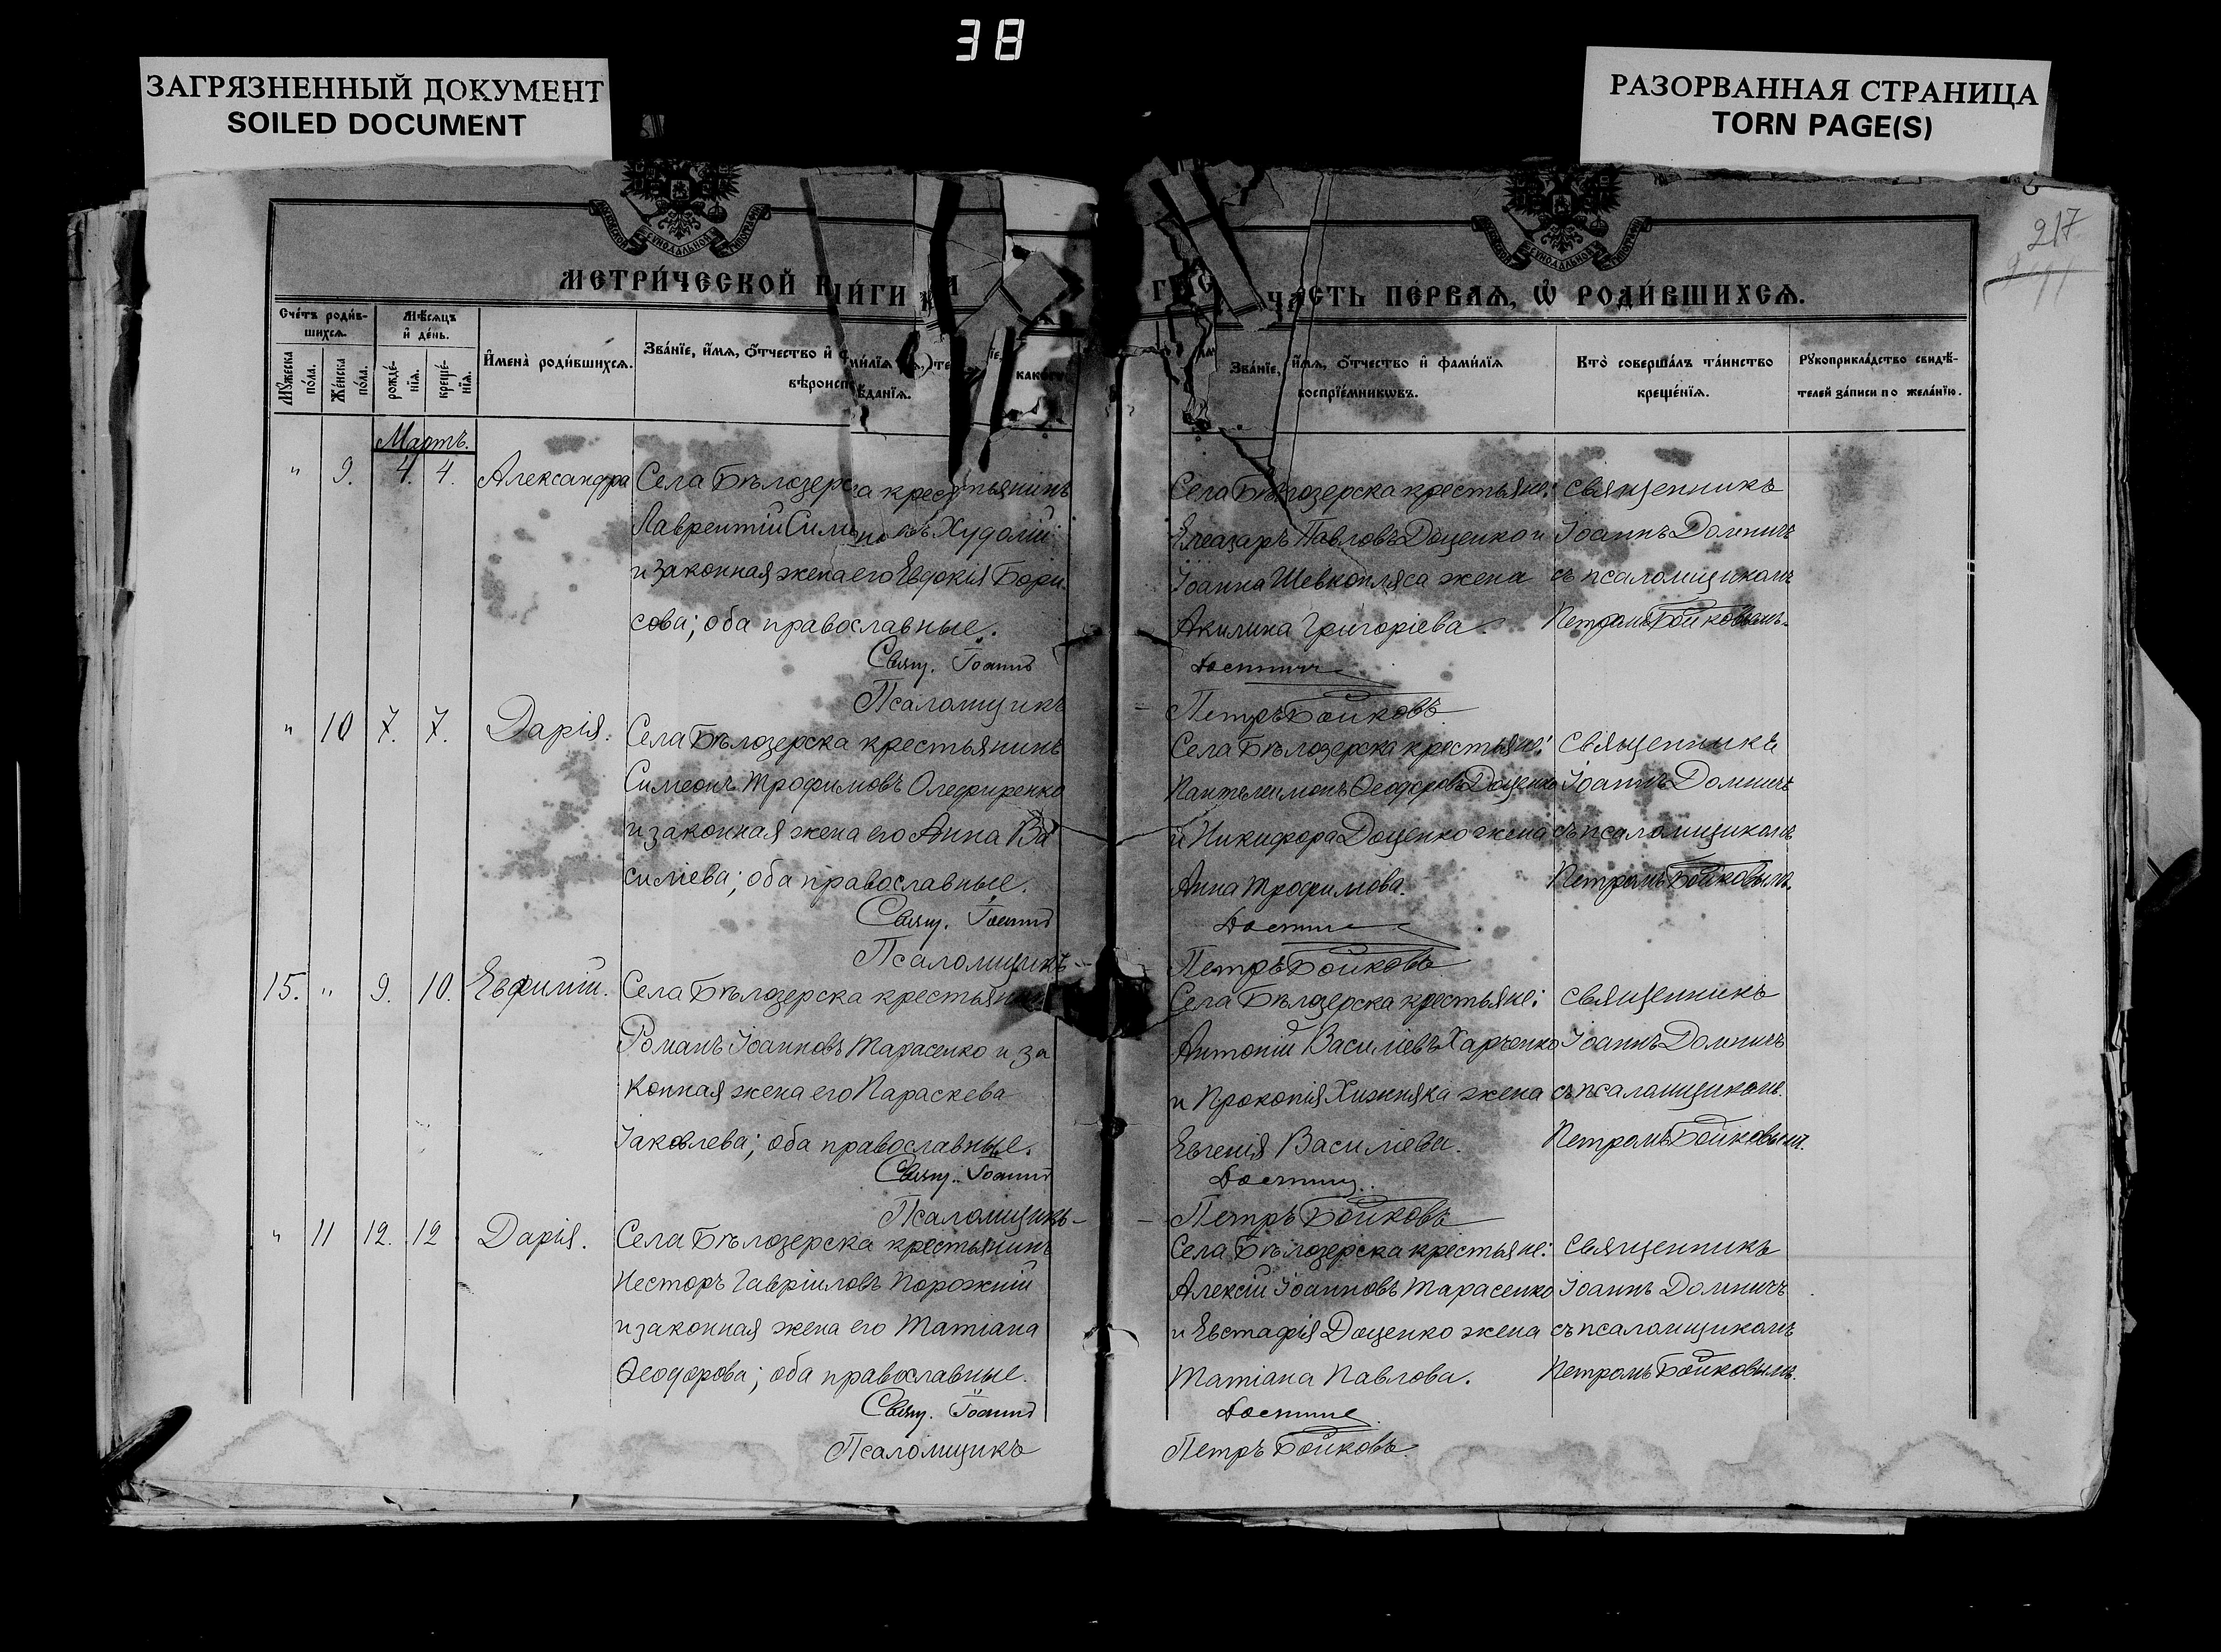 38
ЗАГРЯЗНЕННЫЙ ДОКУМЕНТ
SOILED DOCUMENT
РАЗОРВАННАЯ СТРАНИЦА
TORN PAGE(S)
217
МЕТРИ́ЧЕСКОЙ КНИ́ГИ
ЧА́СТЬ ПЕ́РВАЯ, Ѡ РОДИ́ВШИХСЯ.
Сче́тъ роди́в-
шихся.
Мѣ́сяцъ
и҆ де́нь.
Мꙋ́жеска
по́ла.
Же́нска
по́ла.
рожде́-
нїя.
креще́-
нїя.
И҆мена̀ роди́вшихся.
Зва́нїе, и҆́мя, ѻ҆́тчество и҆ фами́лїя
вѣроисповѣ́данїя.
Зва́нїе, и҆́мя, ѻ҆́тчество и҆ фами́лїя
воспрїе́мникѡвъ.
Кто̀ соверша́лъ та́инство
креще́нїя.
Рꙋкоприкла́дство свидѣ́-
телей за́писи по жела́нїю.
Мартъ.
" 9. 4. 4. Александра
Села Бѣлозерска крестьянинъ
Лаврентій Симоновъ Худолій
и законная жена его Евдокія Бори-
сова; оба православные.
Свящ. Іоаннъ
Псаломщикъ
Села Бѣлозерска крестьяне:
Елеазаръ Павловъ Доценко и
Іоанна Шевкопляса жена
Акилина Григоріева.
Петръ Бойковъ
Священникъ
Іоаннъ
съ псаломщикомъ
Петромъ Бойковымъ.
" 10 7. 7. Дарія.
Села Бѣлозерска крестьянинъ
Симеонъ Трофимовъ Олефиренко
и законная жена его Анна Ва
силіева; оба православные.
Свящ. Іоаннъ
Псаломщикъ
Села Бѣлозерска крестьяне:
Пантелимонъ Ѳеодоровъ Доценко
и Никифора Доценко жена
Анна Трофимова.
Петръ Бойковъ
Священникъ
Іоаннъ
съ псаломщикомъ
Петромъ Бойковымъ.
15. " 9. 10. Евфимій.
Села Бѣлозерска крестьянинъ
Романъ Іоанновъ Тарасенко и за
конная жена его Параскева
Іаковлева; оба православные.
Свящ. Іоаннъ
Псаломщикъ
Села Бѣлозерска крестьяне:
Антоній Василіевъ Харченко
и Прокопія Хижняка жена
Евгенія Василіева.
Петръ Бойковъ
Священникъ
Іоаннъ
съ псаломщикомъ.
Петромъ Бойковымъ.
" 11 12. 12 Дарія.
Села Бѣлозерска крестьянинъ
Несторъ Гавріиловъ Порожній
и законная жена его Татіана
Ѳеодорова; оба православные.
Свящ. Іоаннъ
Псаломщикъ
Села Бѣлозерска крестьяне:
Алексій Іоанновъ Тарасенко
и Евстафія Доценко жена
Татіана Павлова.
Петръ Бойковъ.
Священникъ
Іоаннъ
съ псаломщикомъ
Петромъ Бойковымъ.